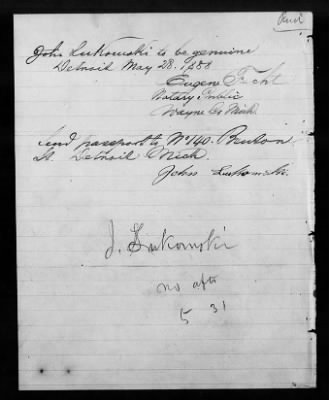 John Lukowski to be genuine
Detroit May 28. 1888
Eugene
Notary Public
Wayne Co Mich.
Send passport to No 140. Benton
St. Detroit Mich.
John Lukowski.
J. Lukowski
no aft
5 31